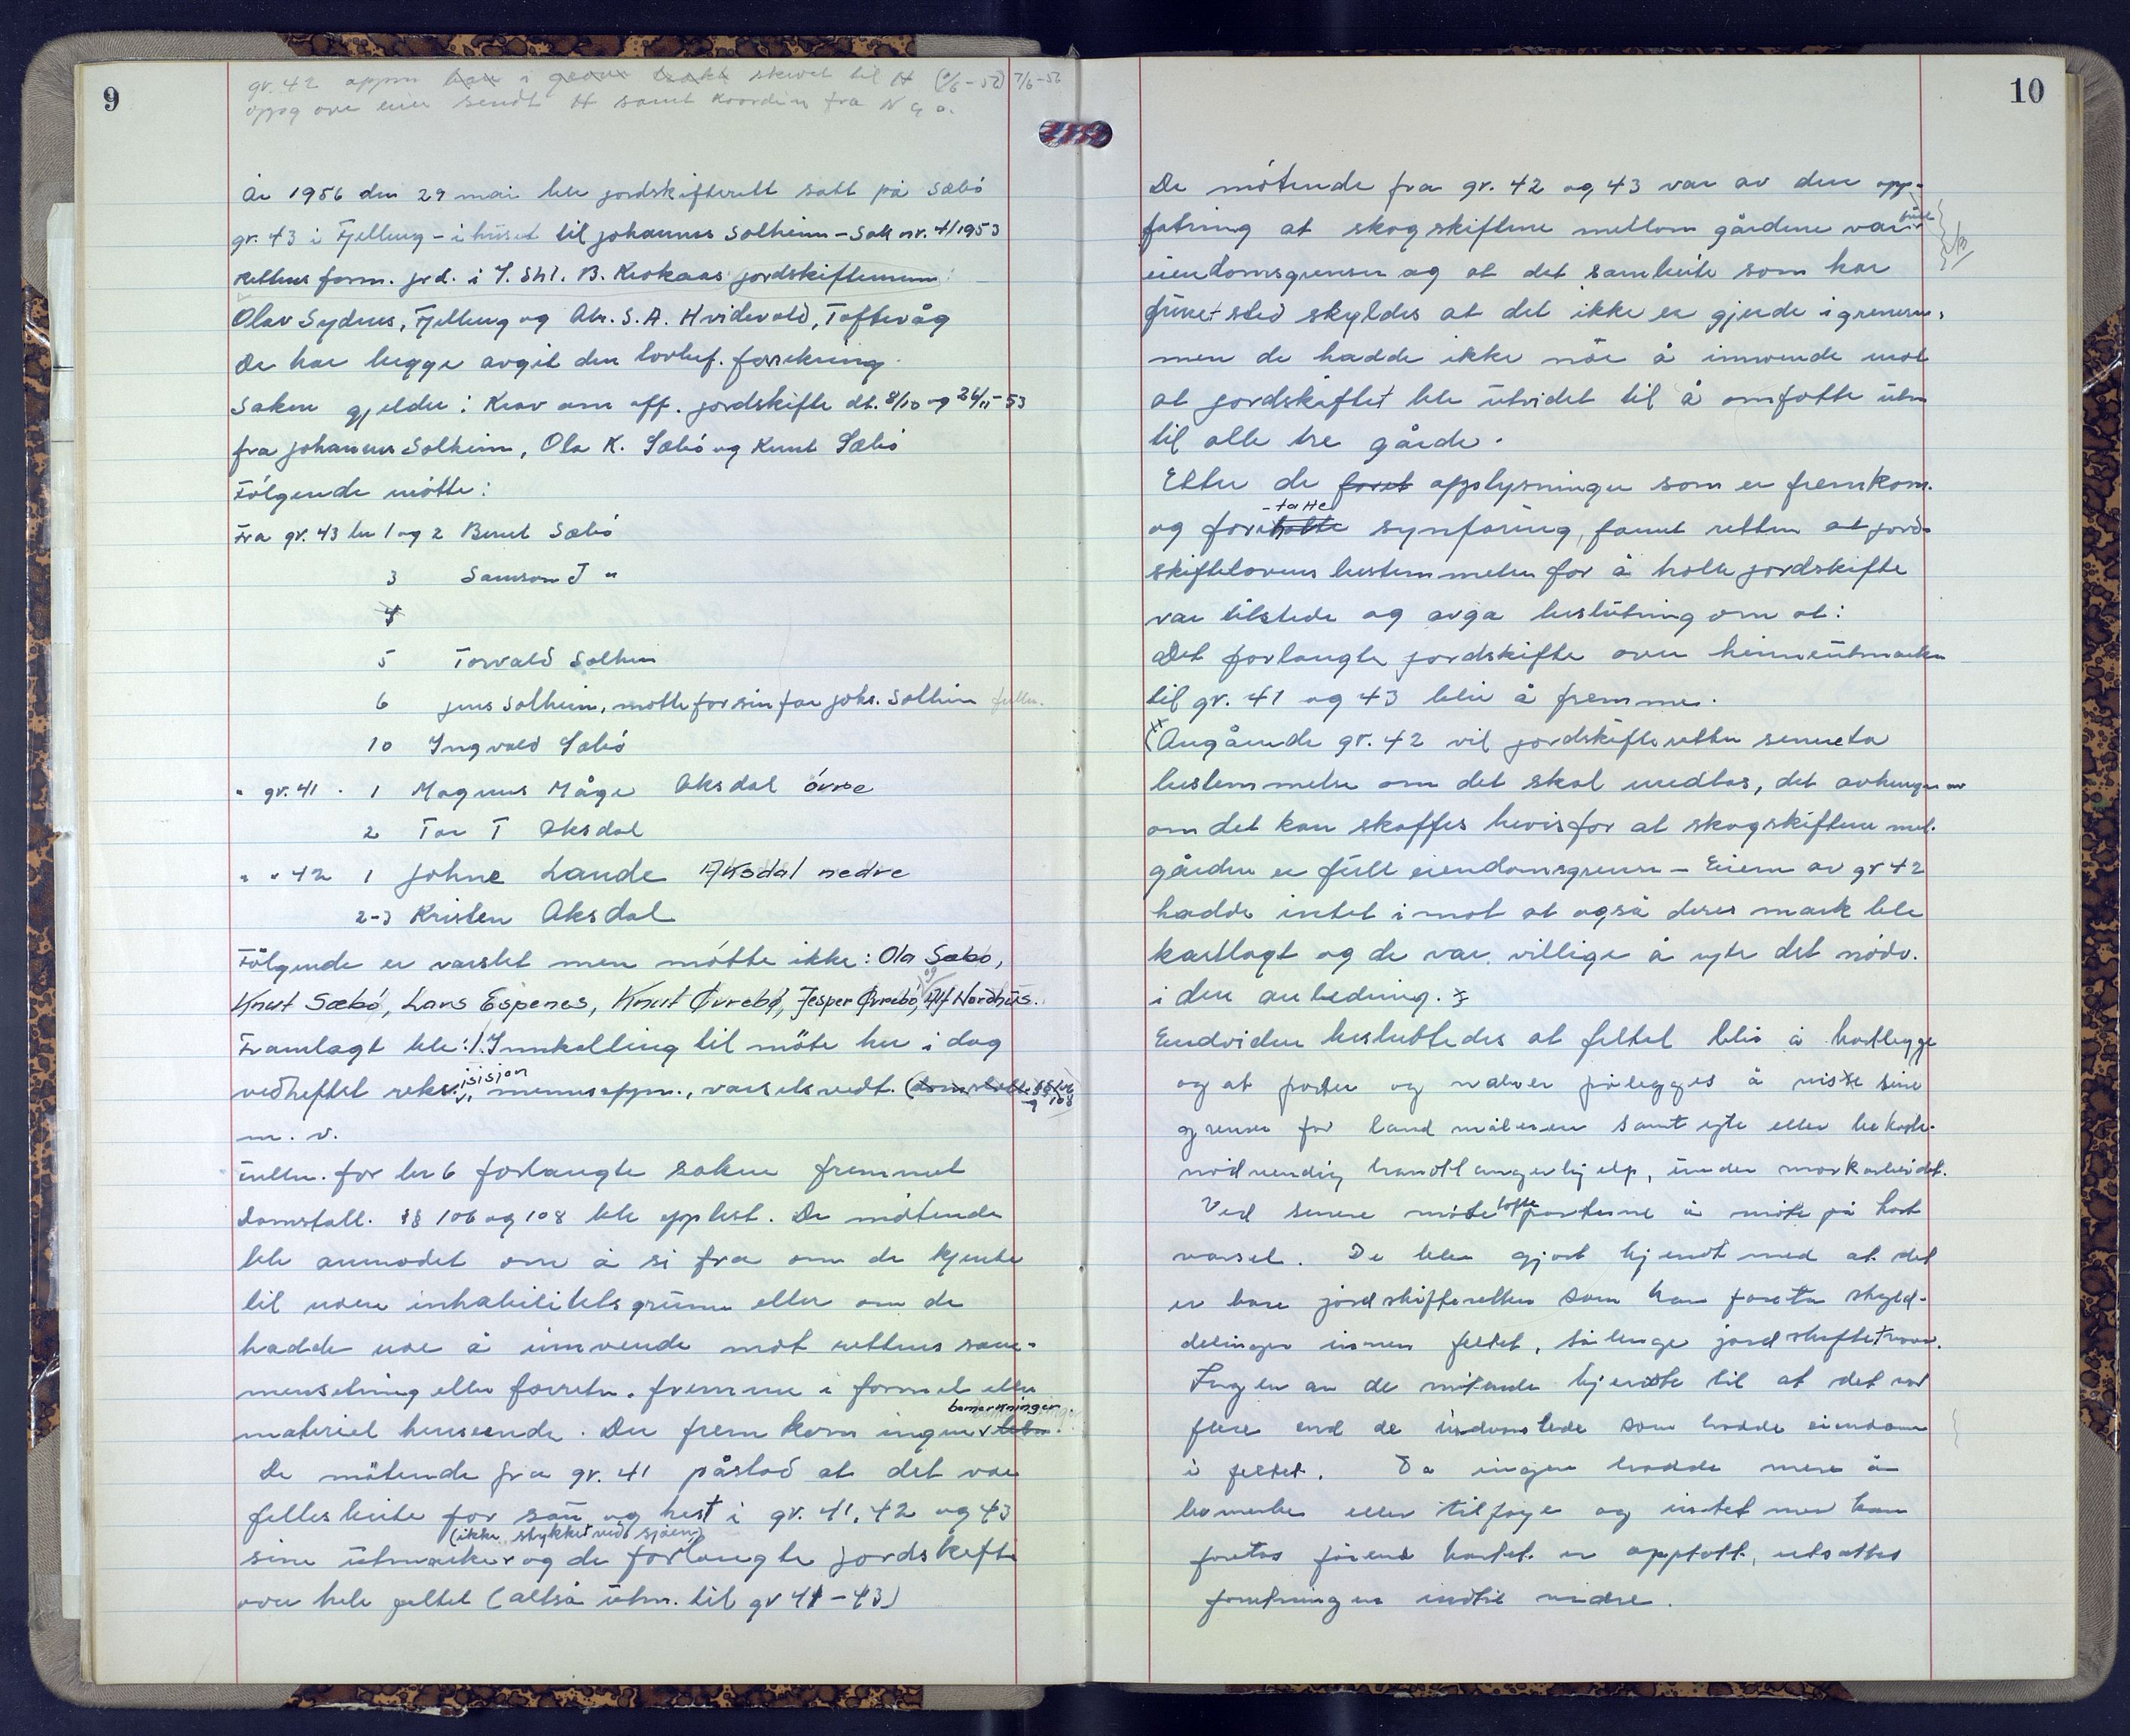 9
gr. 42 oppm i skevet til H (7/6-56) 7/6-56
oppg over eier sendt H samt koordin fra N g o.
År 1956 den 29 mai ble jordskifterett satt på Sæbö
gr. 43 i Fjelberg - i huset til Johannes Solheim - Sak nr. 4/1953
Rettens form. jrd. i S.Shl. B. Krokaas jordskiftemenn:
Olav Sydnes, Fjelberg og Abr. S.A. Hvidevold, Toftevåg
De har begge avgit den lovbef. forsikring.
Saken gjelder: Krav om off. jordskifte dt. 8/10 og 26/11-53
fra Johannes Solheim, Ola K. Sæbö og Knut Sæbö
Fölgende mötte:
Fra gr. 43 br 1 og 2 Bernt Sæbö
3 Samson J "
4
5 Torvald Solheim
6 Jens Solheim, mötte for sin far Johs. Solheim fullm.
10 Ingvald Sæbö
" gr. 41 - 1 Magnus Måge Aksdal övre
2 Tor T Aksdal
" " 42 1 Johne Lande Aksdal nedre
2-3 Kristen Aksdal
Fölgende er varslet men mötte ikke: Ola Sæbø,
Knut Sæbö, Lars Espenes, Knut Øvrebø, Jesper Øvrebö, og Alf Nordhus.
Framlagt ble: 1. Innkalling til möte her i dag
vedheftet rekvisisjon, mennsoppn., varselsvedt. §§ 106 108
m. v.
Fullm. for br 6 forlangte saken fremmet
Domstoll. §§ 106 og 108 ble opplest. De mötende
ble anmodet om å si fra om de kjente
til noen inhabilitetsgrunn eller om de
hadde noe å innvende mot rettens sam-
mensetning eller forretn. fremme i formel eller
materiel henseende. Der fremkom ingen bemerkninger.
De mötende fra gr. 41 påstod at det var
fellesbeite for sau og hest i gr. 41, 42 og 43
(ikke stykket ved sjøen)
sine utmarker og de forlangte jordskifte
over hele feltet (altså utm. til gr 41-43)
10
De mötende fra gr. 42 og 43 var av den opp-
fatning at skogskiftene mellom gårdene var full
eiendomsgrenser og at det sambeite som har
funnet sted skyldes at det ikke er gjerde i grensen,
men de hadde ikke noe å innvende mot
at jordskiftet ble utvidet til å omfatte utm
til alle tre gårde.
Etter de foret opplysninger som er fremkom.
og foretatte synfaring, fannt retten at jord-
skiftelovens bestemmelser for å holde jordskifte
var tilstede og avga beslutning om at:
Det forlangte jordskifte over heimeutmarken
til gr. 41 og 43 blir å fremme.
(Angående gr. 42 vil jordskifteretten senere ta
bestemmelse om det skal medtas, det avhenger av
om det kan skaffes bevis for at skogskiftene mel.
gården er full eiendomsgrense - Eierne av gr 42
hadde intet imot at også deres mark ble
kartlagt og de var villige å yte det nödv.
i den anledning.
Endvidere besluttedes at feltet blir å kartlegge
og at parter og naboer pålegges å vise sine
grenser for landmåleren samt yte eller bekoste
nödvendig handtlangerhjelp, under markarbeidet.
Ved senere möte lofte partene å möte på kort
varsel. De blev gjort kjendt med at det
er bare jordskifteretten som kan foreta skyld-
delinger innen feltet, så lenge jordskiftet varer.
Ingen av de mötende kjendte til at det var
flere end de innvarslede som hadde eiendom
i feltet. Da ingen hadde mere å
bemerke eller tilföye og intet mer kan
foretas förend kartet er opptatt, utsattes
forretningen indtil videre.